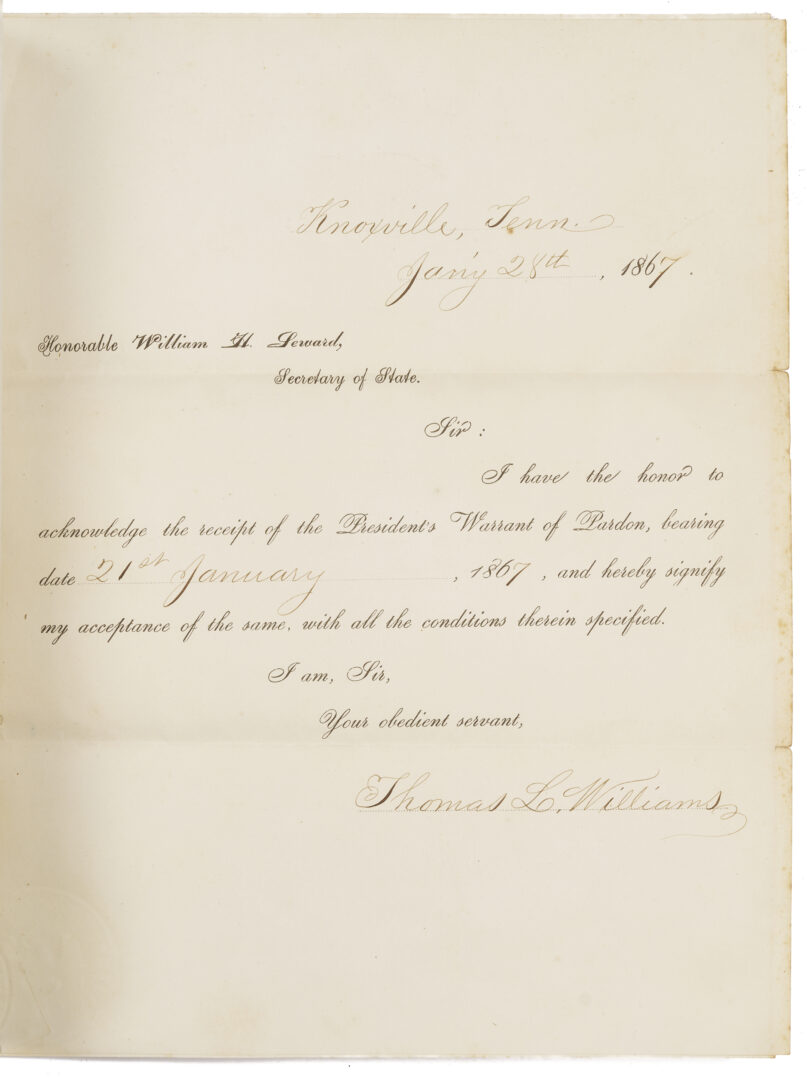 Knoxville, Tenn.
Jan'y 28th, 1867.
Honorable William H. Seward,
Secretary of State.
Sir:
I have the honor to
acknowledge the receipt of the President's Warrant of Pardon, bearing
date 21st January, 1867, and hereby signify
my acceptance of the same, with all the conditions therein specified.
I am, Sir,
Your obedient servant,
Thomas L. Williams